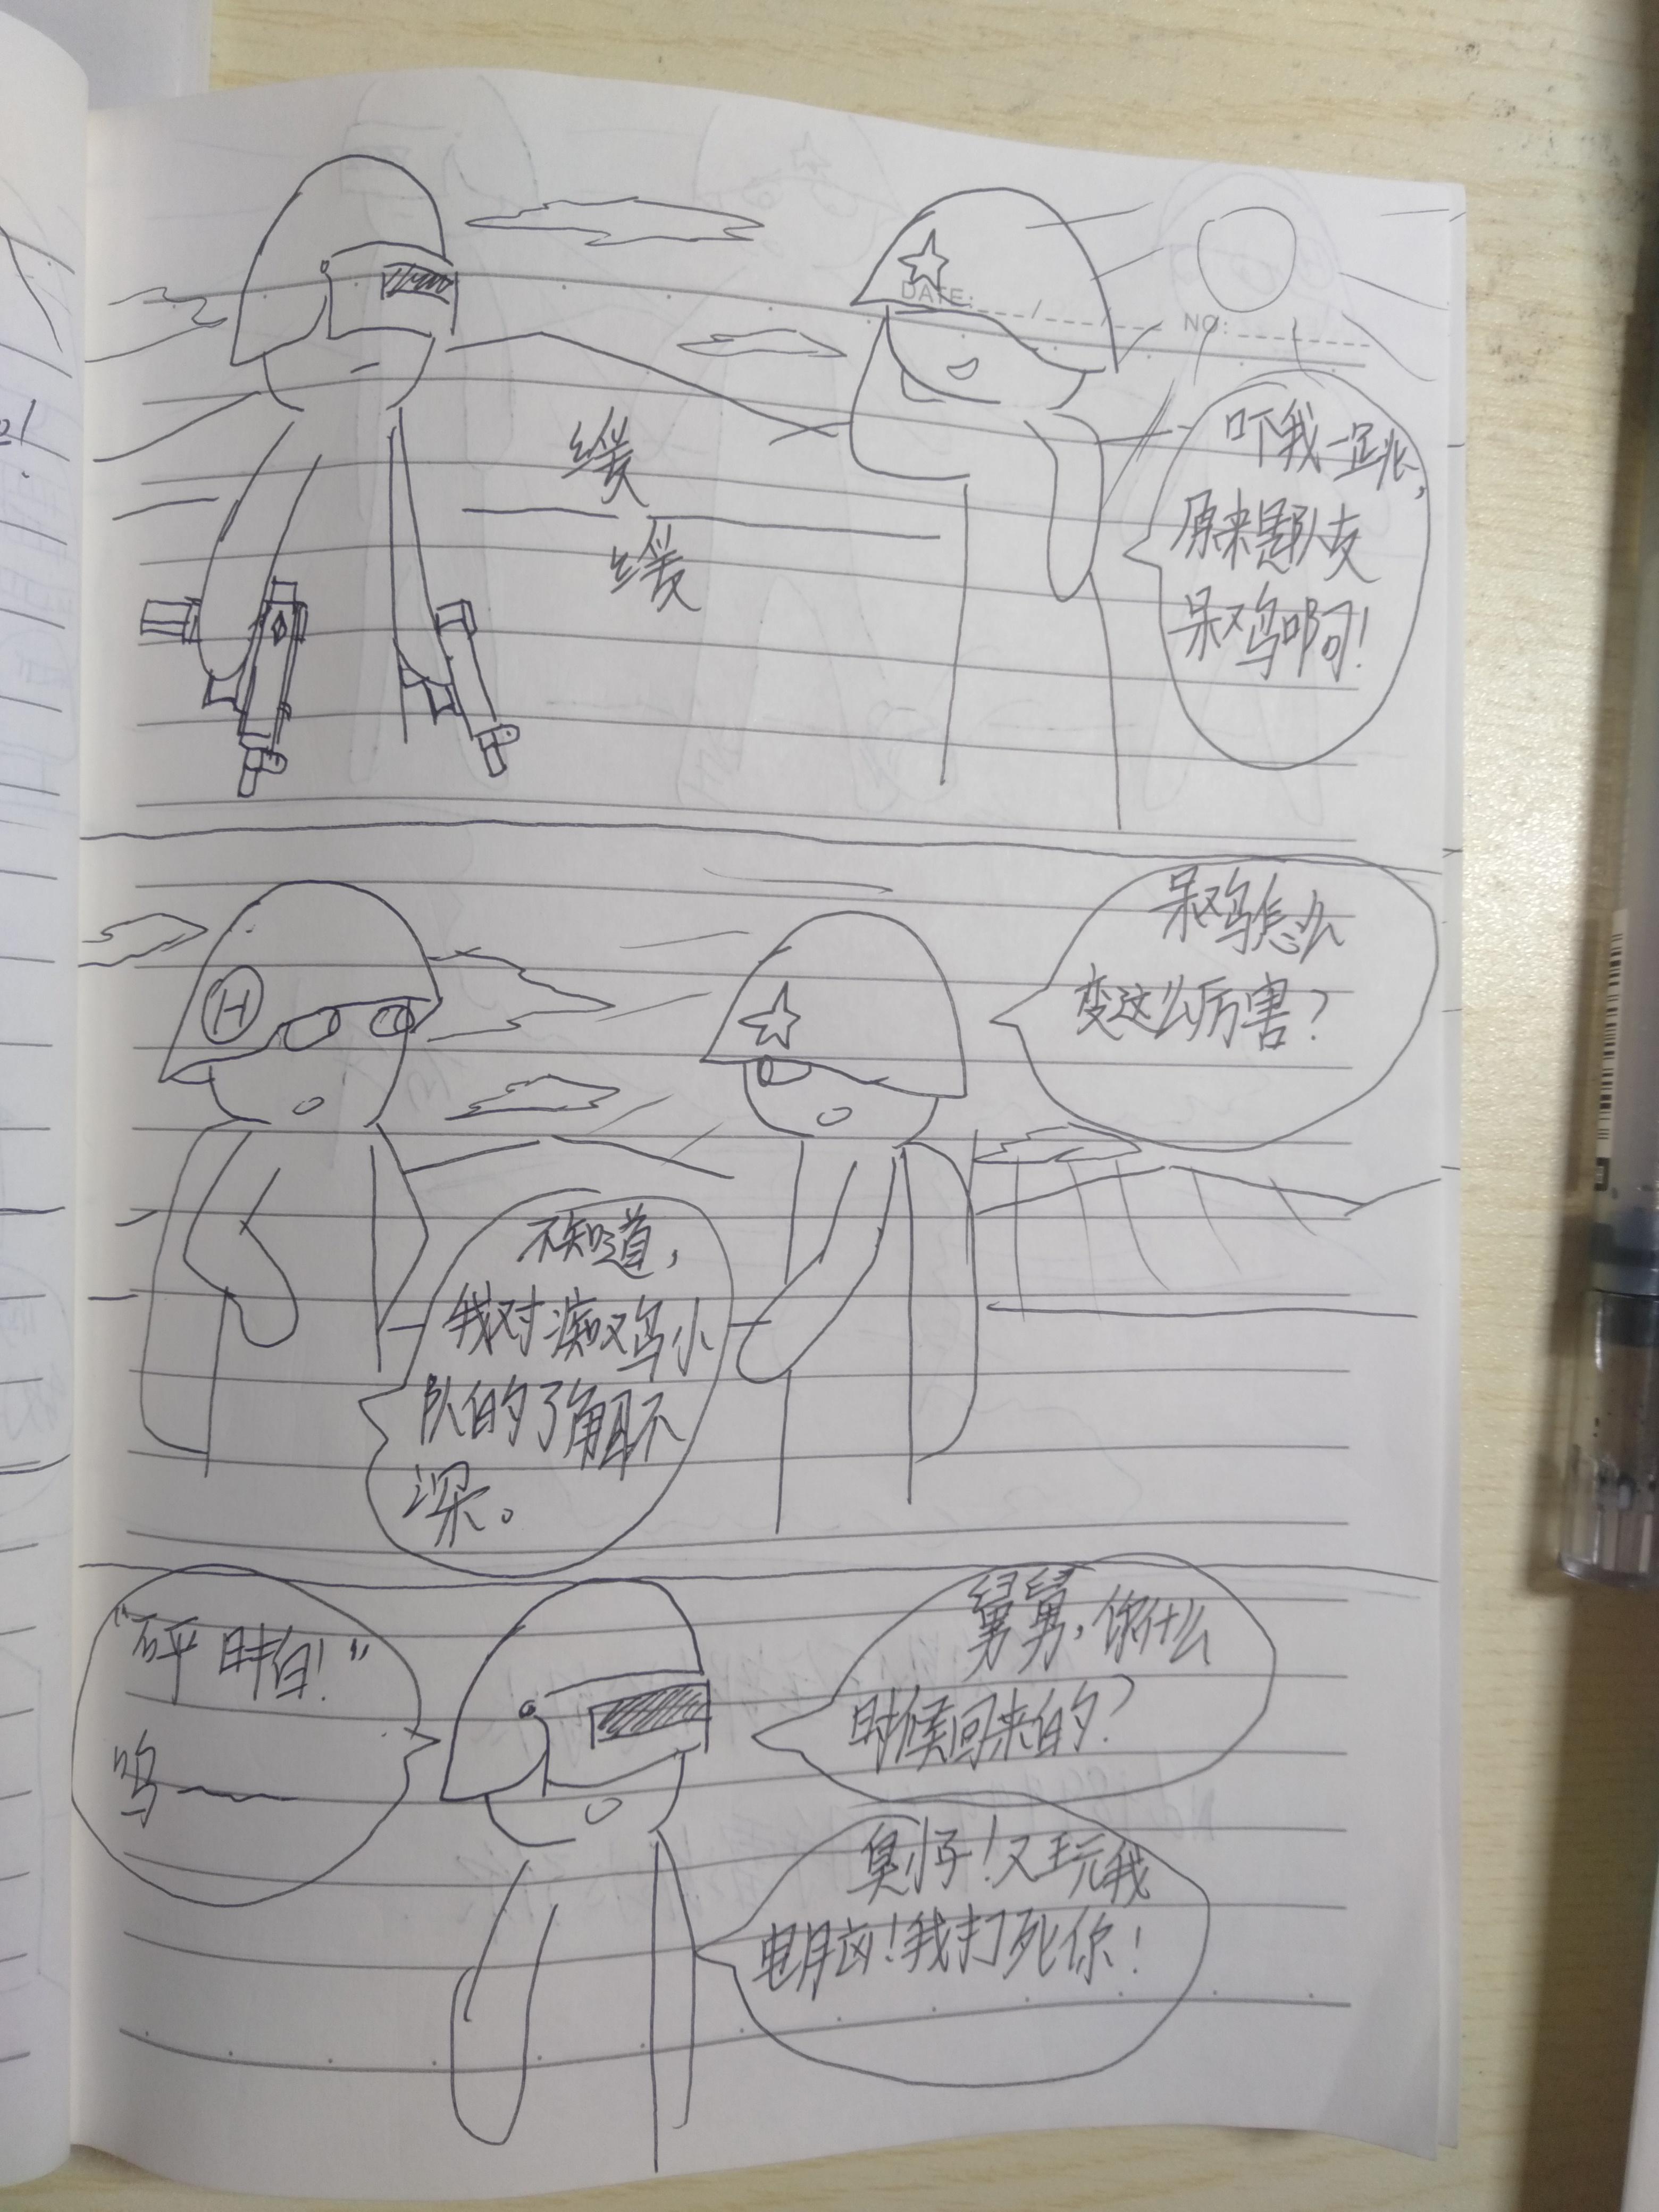 DATE: / /
NO:
吓我一跳,
原来是队友
呆鸡啊!
缓
缓
呆鸡怎么
变这么厉害?
H
不知道,
我对痴鸡小
队的了解不
深。
"砰 啪!"
呜——
舅舅,你什么
时候回来的?
臭小子!又玩我
电脑!我打死你!